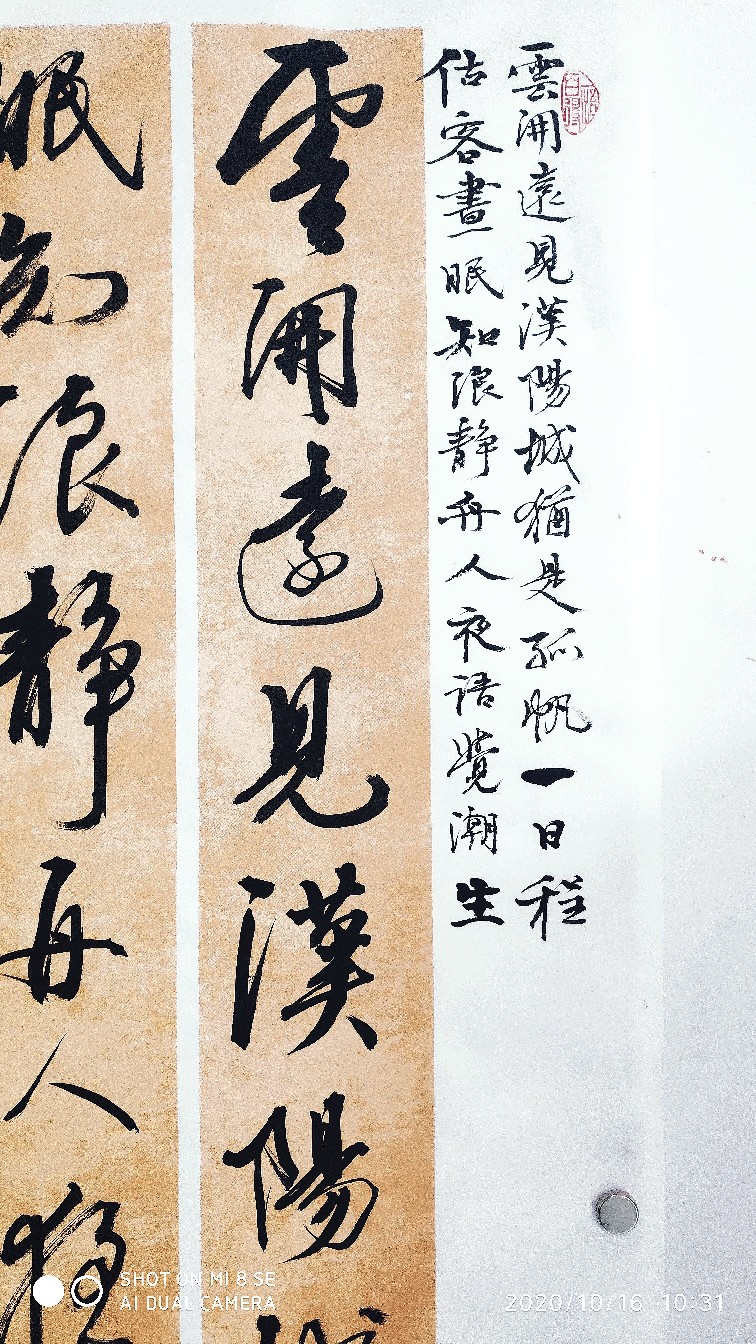 雲開遠見漢陽城猶是孤帆一日程
估客晝眠知浪靜舟人夜語覺潮生
雲開遠見漢陽
眠知浪靜舟人
SHOT ON MI 8 SE
AI DUAL CAMERA
2020/10/16 10:31